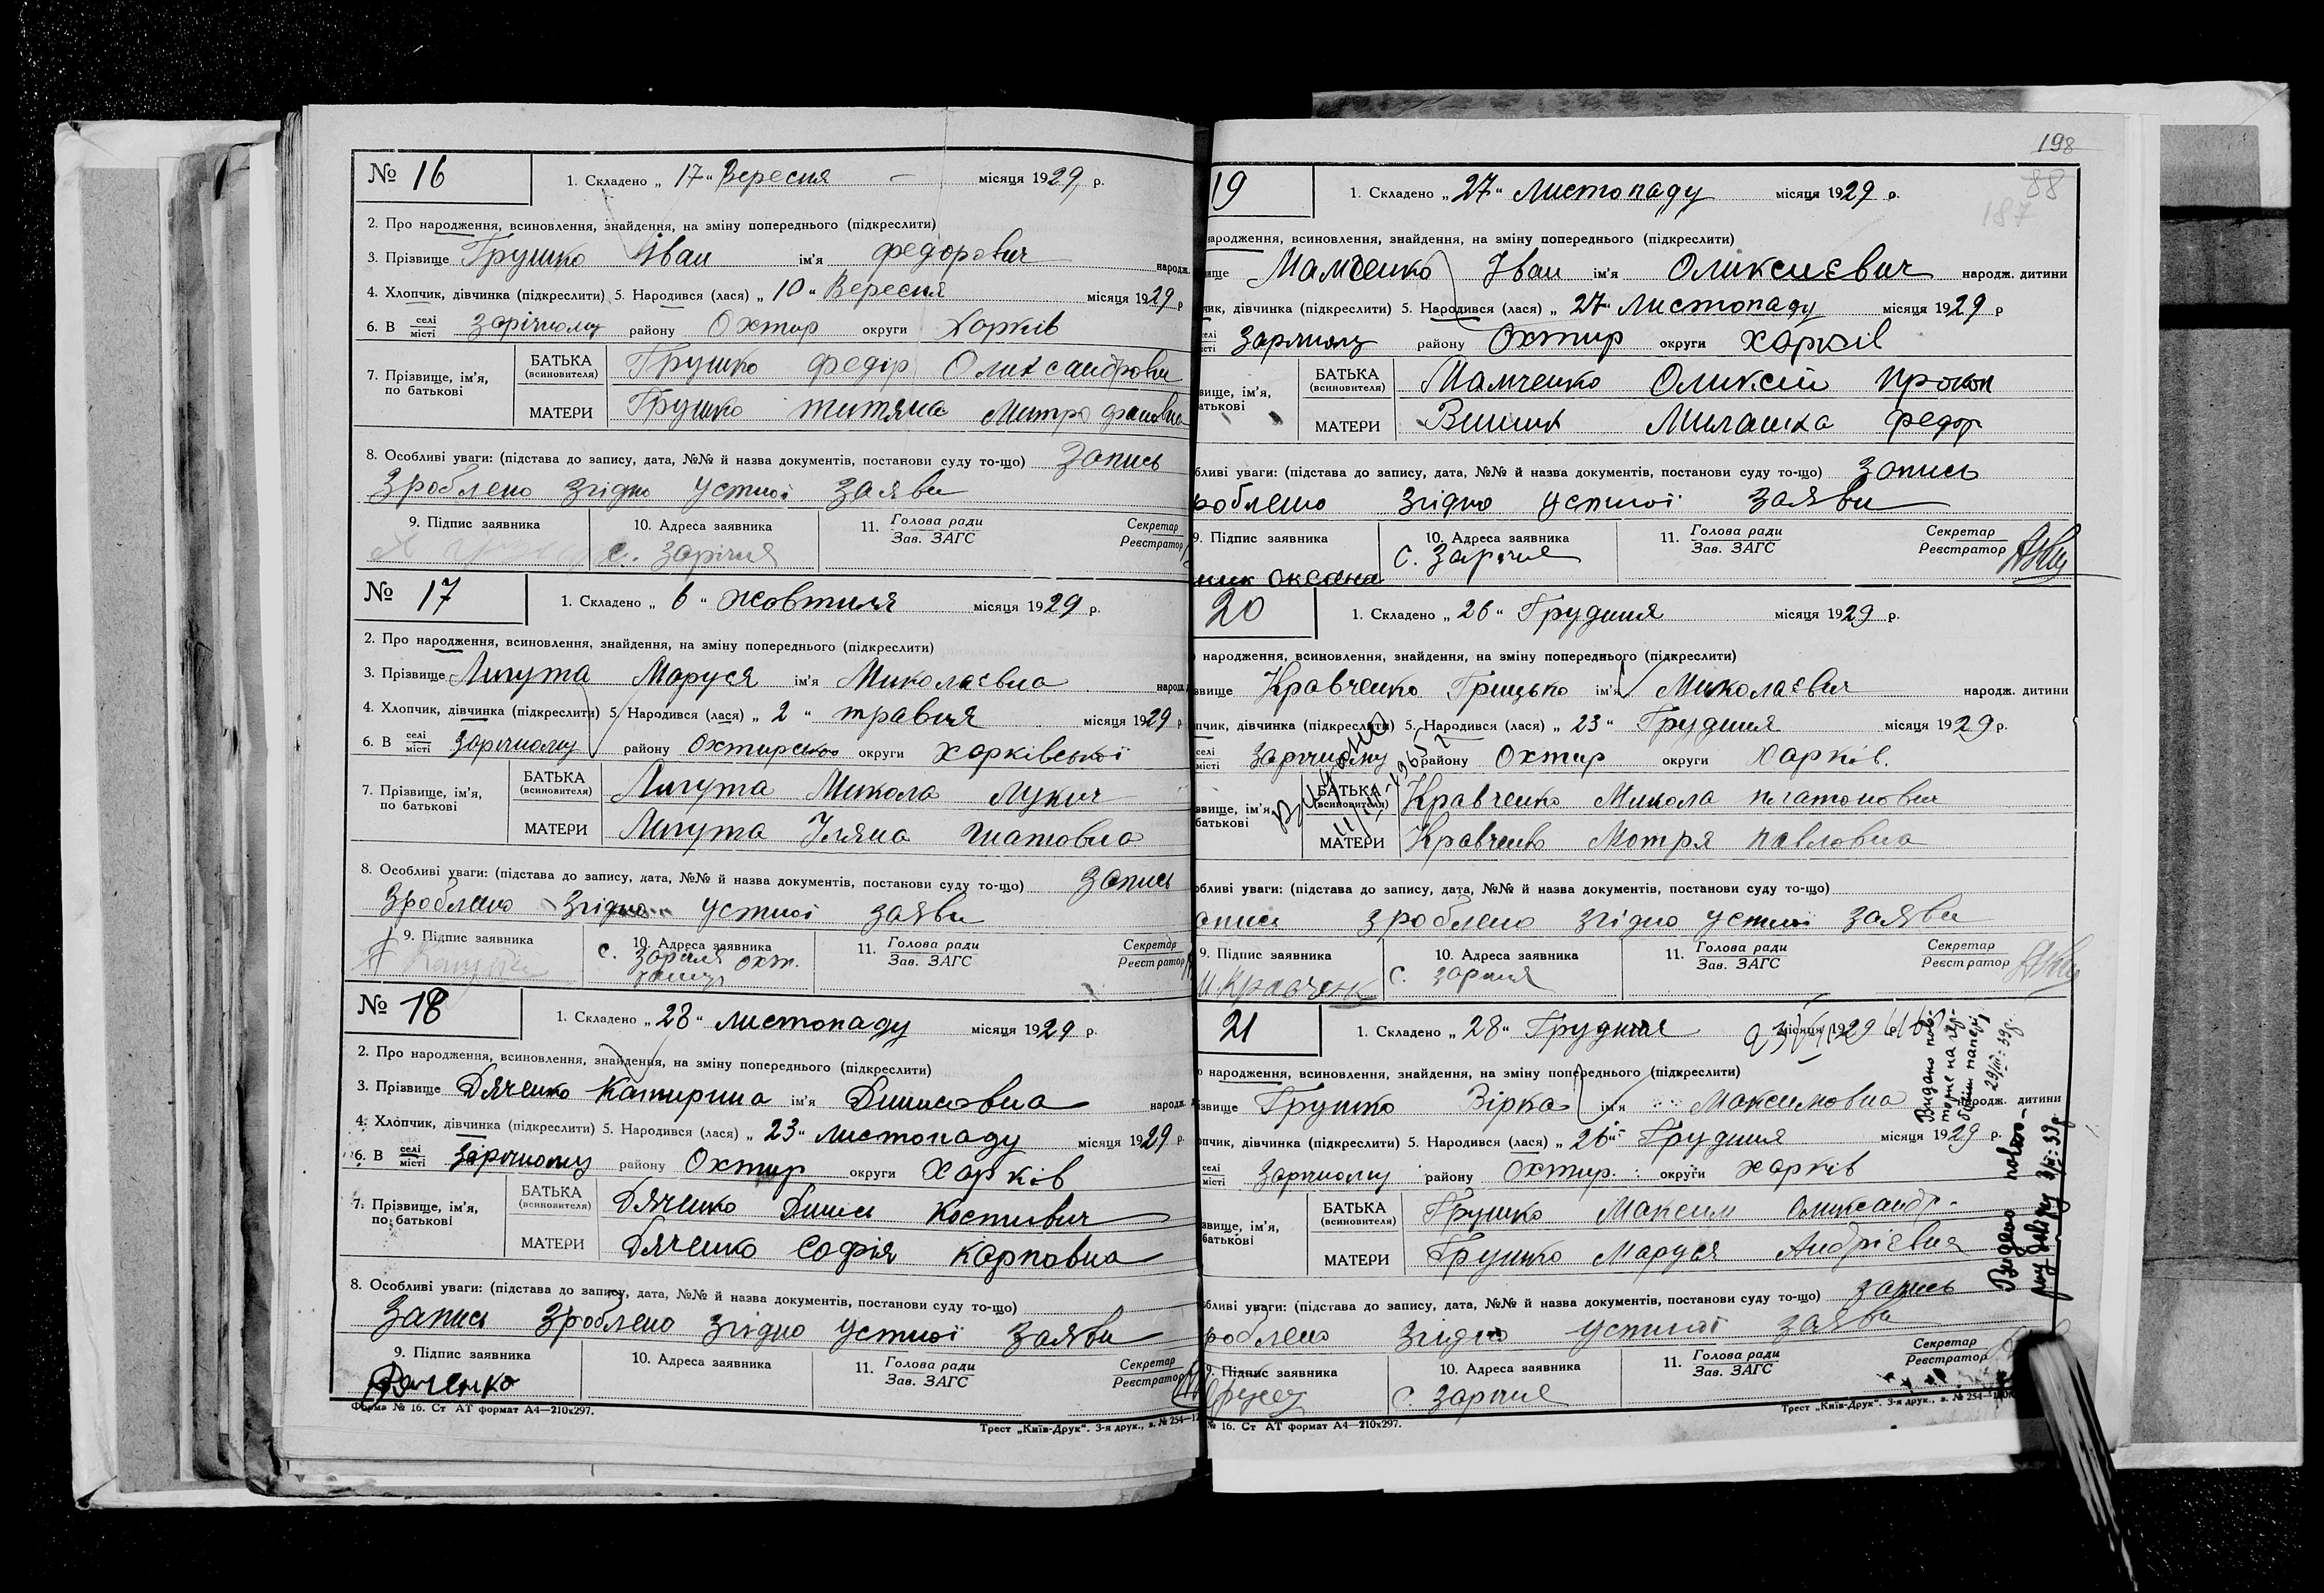 № 16
1. Складено „ 17 “ Вересня — місяця 1929 р.
2. Про народження, всиновлення, знайдення, на зміну попереднього (підкреслити)
3. Прізвище Грушко Іван ім'я Федорович народж.
4. Хлопчик, дівчинка (підкреслити) 5. Народився (лася) „ 10 “ Вересня місяця 1929 р
6. В селі/місті Зарічному району Охтир округи Харків
7. Прізвище, ім'я, по батькові
БАТЬКА (всиновителя) Грушко Федір Олександрови
МАТЕРИ Грушко титяна Митрофановна
8. Особливі уваги: (підстава до запису, дата, №№ й назва документів, постанови суду то-що) Запись
Зроблено згідно устної заяви
9. Підпис заявника 10. Адреса заявника 11. Голова ради/Зав. ЗАГС Секретар/Реєстратор
с. Зарічня
№ 17
1. Складено „ 6 “ жовтня місяця 1929 р.
2. Про народження, всиновлення, знайдення, на зміну попереднього (підкреслити)
3. Прізвище Лигута Маруся ім'я Миколаєвна народж.
4. Хлопчик, дівчинка (підкреслити) 5. Народився (лася) „ 2 “ травня місяця 1929 р
6. В селі/місті Зарічному району Охтирсько округи Харківської
7. Прізвище, ім'я, по батькові
БАТЬКА (всиновителя) Лигута Микола Лукич
МАТЕРИ Лигута Уляна
8. Особливі уваги: (підстава до запису, дата, №№ й назва документів, постанови суду то-що) Запись
Зроблено Згідно устної заяви
9. Підпис заявника 10. Адреса заявника 11. Голова ради/Зав. ЗАГС Секретар/Реєстратор
с. Заричя Охт.
№ 18
1. Складено „ 28 “ листопаду місяця 1929 р.
2. Про народження, всиновлення, знайдення, на зміну попереднього (підкреслити)
3. Прізвище Дяченко Катирина ім'я Динисовна народж.
4. Хлопчик, дівчинка (підкреслити) 5. Народився (лася) „ 23 “ листопаду місяця 1929 р.
6. В селі/місті Зарічному району Охтир округи Харків
7. Прізвище, ім'я, по батькові
БАТЬКА (всиновителя) Дяченко Динис Костивич
МАТЕРИ Дяченко Софія Карповна
8. Особливі уваги: (підстава до запису, дата, №№ й назва документів, постанови суду то-що)
Запись Зроблено згідно устної заяви
9. Підпис заявника 10. Адреса заявника 11. Голова ради/Зав. ЗАГС Секретар/Реєстратор
Дяченко
Форма № 16. Ст АТ формат А4—210х297.
Трест „Київ-Друк“. 3-я друк., з. № 254—12
198
88
187
19
1. Складено „ 27 “ Листопаду місяця 1929 р.
народження, всиновлення, знайдення, на зміну попереднього (підкреслити)
ище Мамченко Іван ім'я Оликсиєвич народж. дитини
чик, дівчинка (підкреслити) 5. Народився (лася) „ 27 “ Листопаду місяця 1929 р
селі/місті Заричному району Охтир округи Харків
звище, ім'я, батькові
БАТЬКА (всиновителя) Мамченко Оликсій Прокоп
МАТЕРИ Милашка Федор
бливі уваги: (підстава до запису, дата, №№ й назва документів, постанови суду то-що) Запись
роблено згідно устної заяви
9. Підпис заявника 10. Адреса заявника 11. Голова ради/Зав. ЗАГС Секретар/Реєстратор
ник Оксана с. Заричя
20
1. Складено „ 26 “ Грудння місяця 1929 р.
народження, всиновлення, знайдення, на зміну попереднього (підкреслити)
звище Кравченко Грицько ім'я Миколаєвич народж. дитини
пчик, дівчинка (підкреслити) 5. Народився (лася) „ 23 “ Грудння місяця 1929 р.
селі/місті Заричному району Охтир округи Харків.
звище, ім'я, батькові
БАТЬКА (всиновителя) Кравченко Микола платонович
МАТЕРИ Кравченко Мотря павловна
обливі уваги: (підстава до запису, дата, №№ й назва документів, постанови суду то-що)
апись зроблено згідно устної заяви
9. Підпис заявника 10. Адреса заявника 11. Голова ради/Зав. ЗАГС Секретар/Реєстратор
М Кравченк с. Заричя
21
1. Складено „ 28 “ Грудння місяця 1929 р.
народження, всиновлення, знайдення, на зміну попереднього (підкреслити)
ізвище Грушко Вірка ім'я Максимовна народж. дитини
пчик, дівчинка (підкреслити) 5. Народився (лася) „ 26 “ Грудння місяця 1929 р.
селі/місті Заричному району Охтир. округи Харків
звище, ім'я, батькові
БАТЬКА (всиновителя) Грушко Максим Олександр-
МАТЕРИ Грушко Маруся Андрієвна
бливі уваги: (підстава до запису, дата, №№ й назва документів, постанови суду то-що) Запись
роблено Згідно устної заяви
9. Підпис заявника 10. Адреса заявника 11. Голова ради/Зав. ЗАГС Секретар/Реєстратор
с. Заричя
Видано пов-
торне на гер-
бовім папері
29/III-39р.
№ 16. Ст АТ формат А4—210х297.
Трест „Київ-Друк“. 3-я друк., з. № 254—